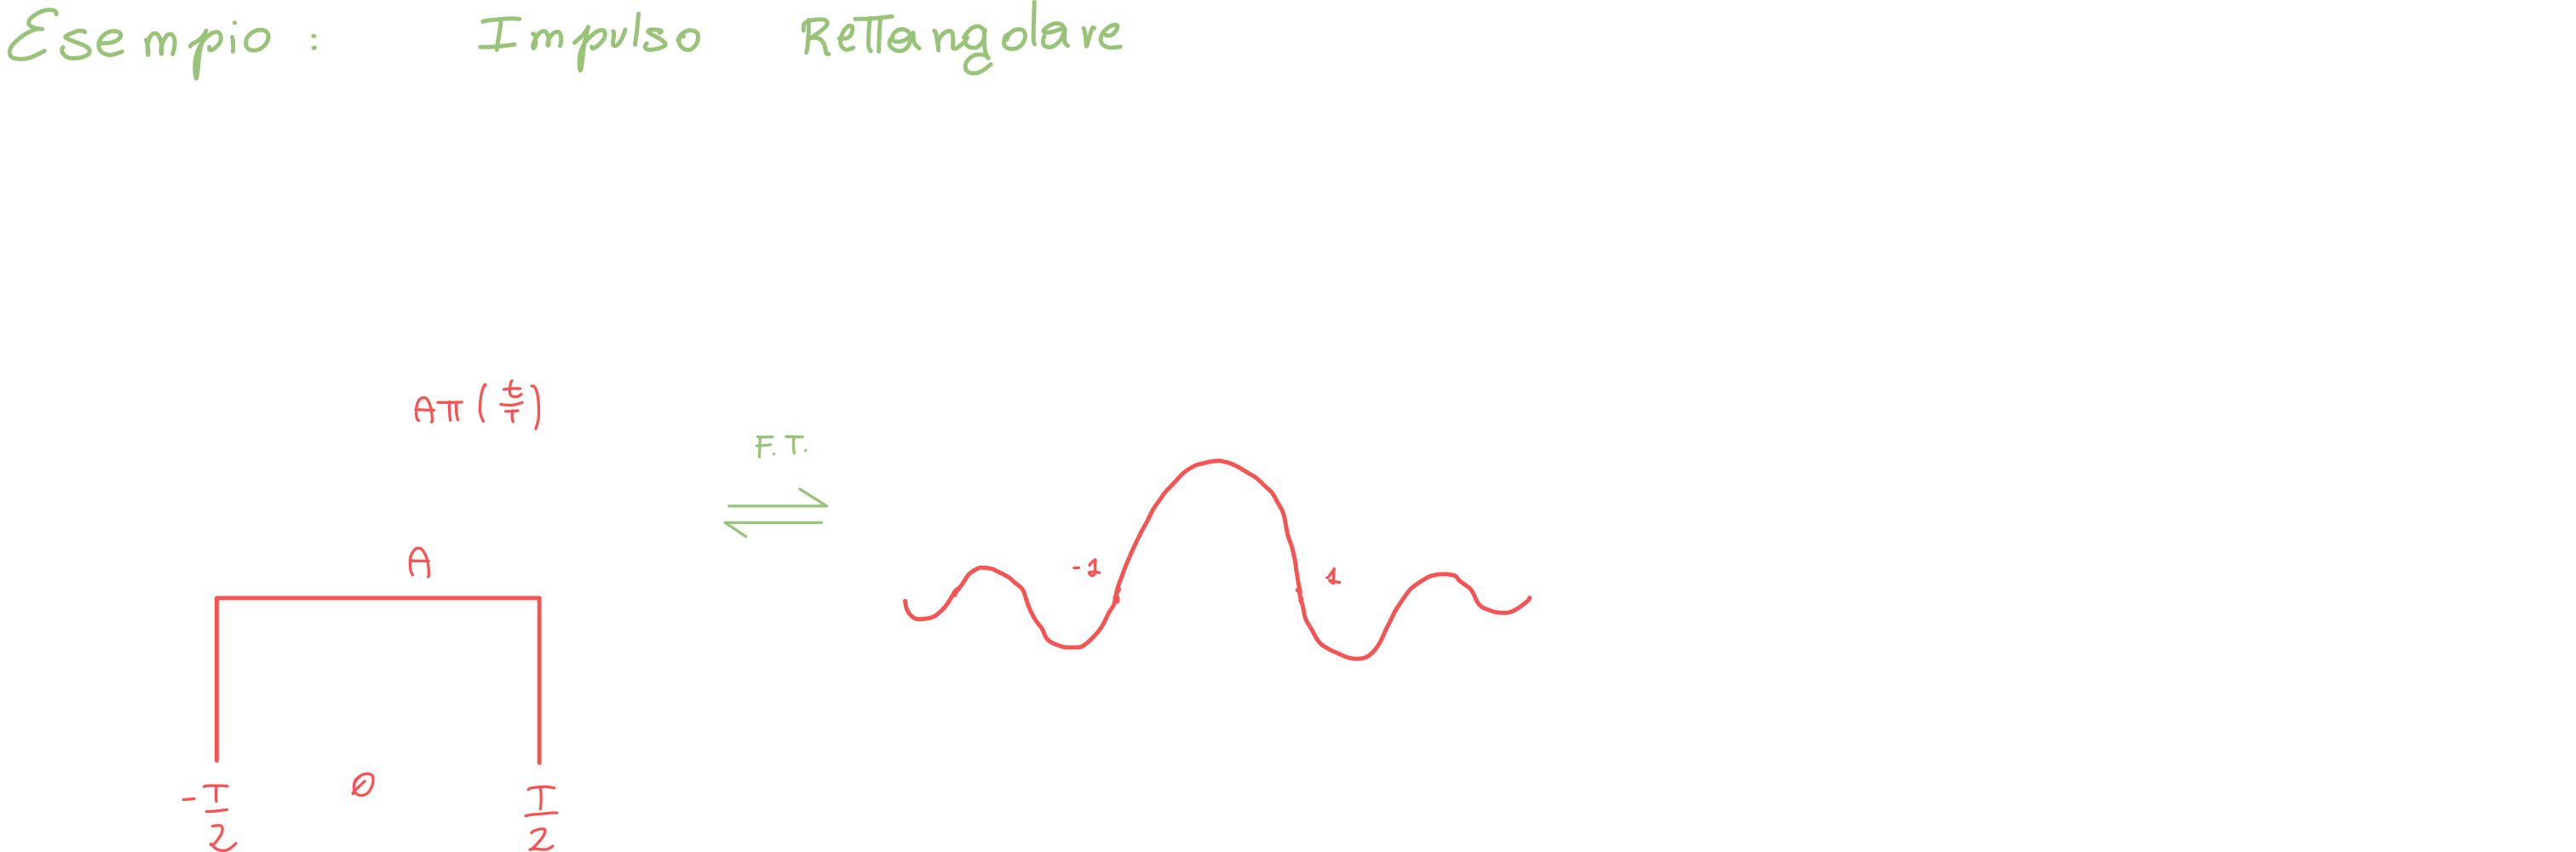 Esempio : Impulso Rettangolare
Aπ(t/T)
F.T.
A
-1
1
-T/2
0
T/2